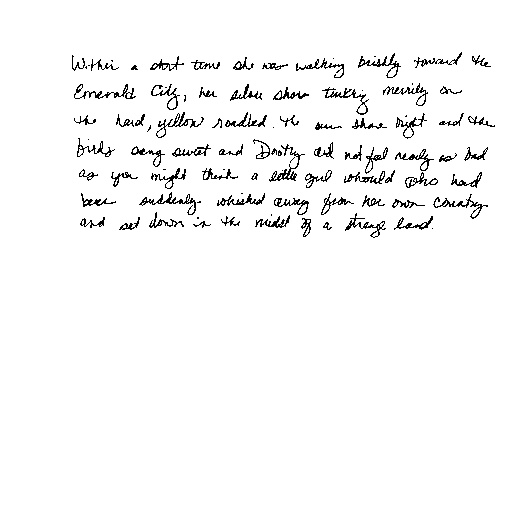 Within a short time she was walking briskly toward the
Emerald City, her silver shoes tinkling merrily on
the hard, yellow roadbed. The sun shone bright and the
birds sang sweet and Dorothy did not feel nearly as bad
as you might think a little girl whould who had
been suddenly whisked away from her own country
and set down in the midst of a strange land.